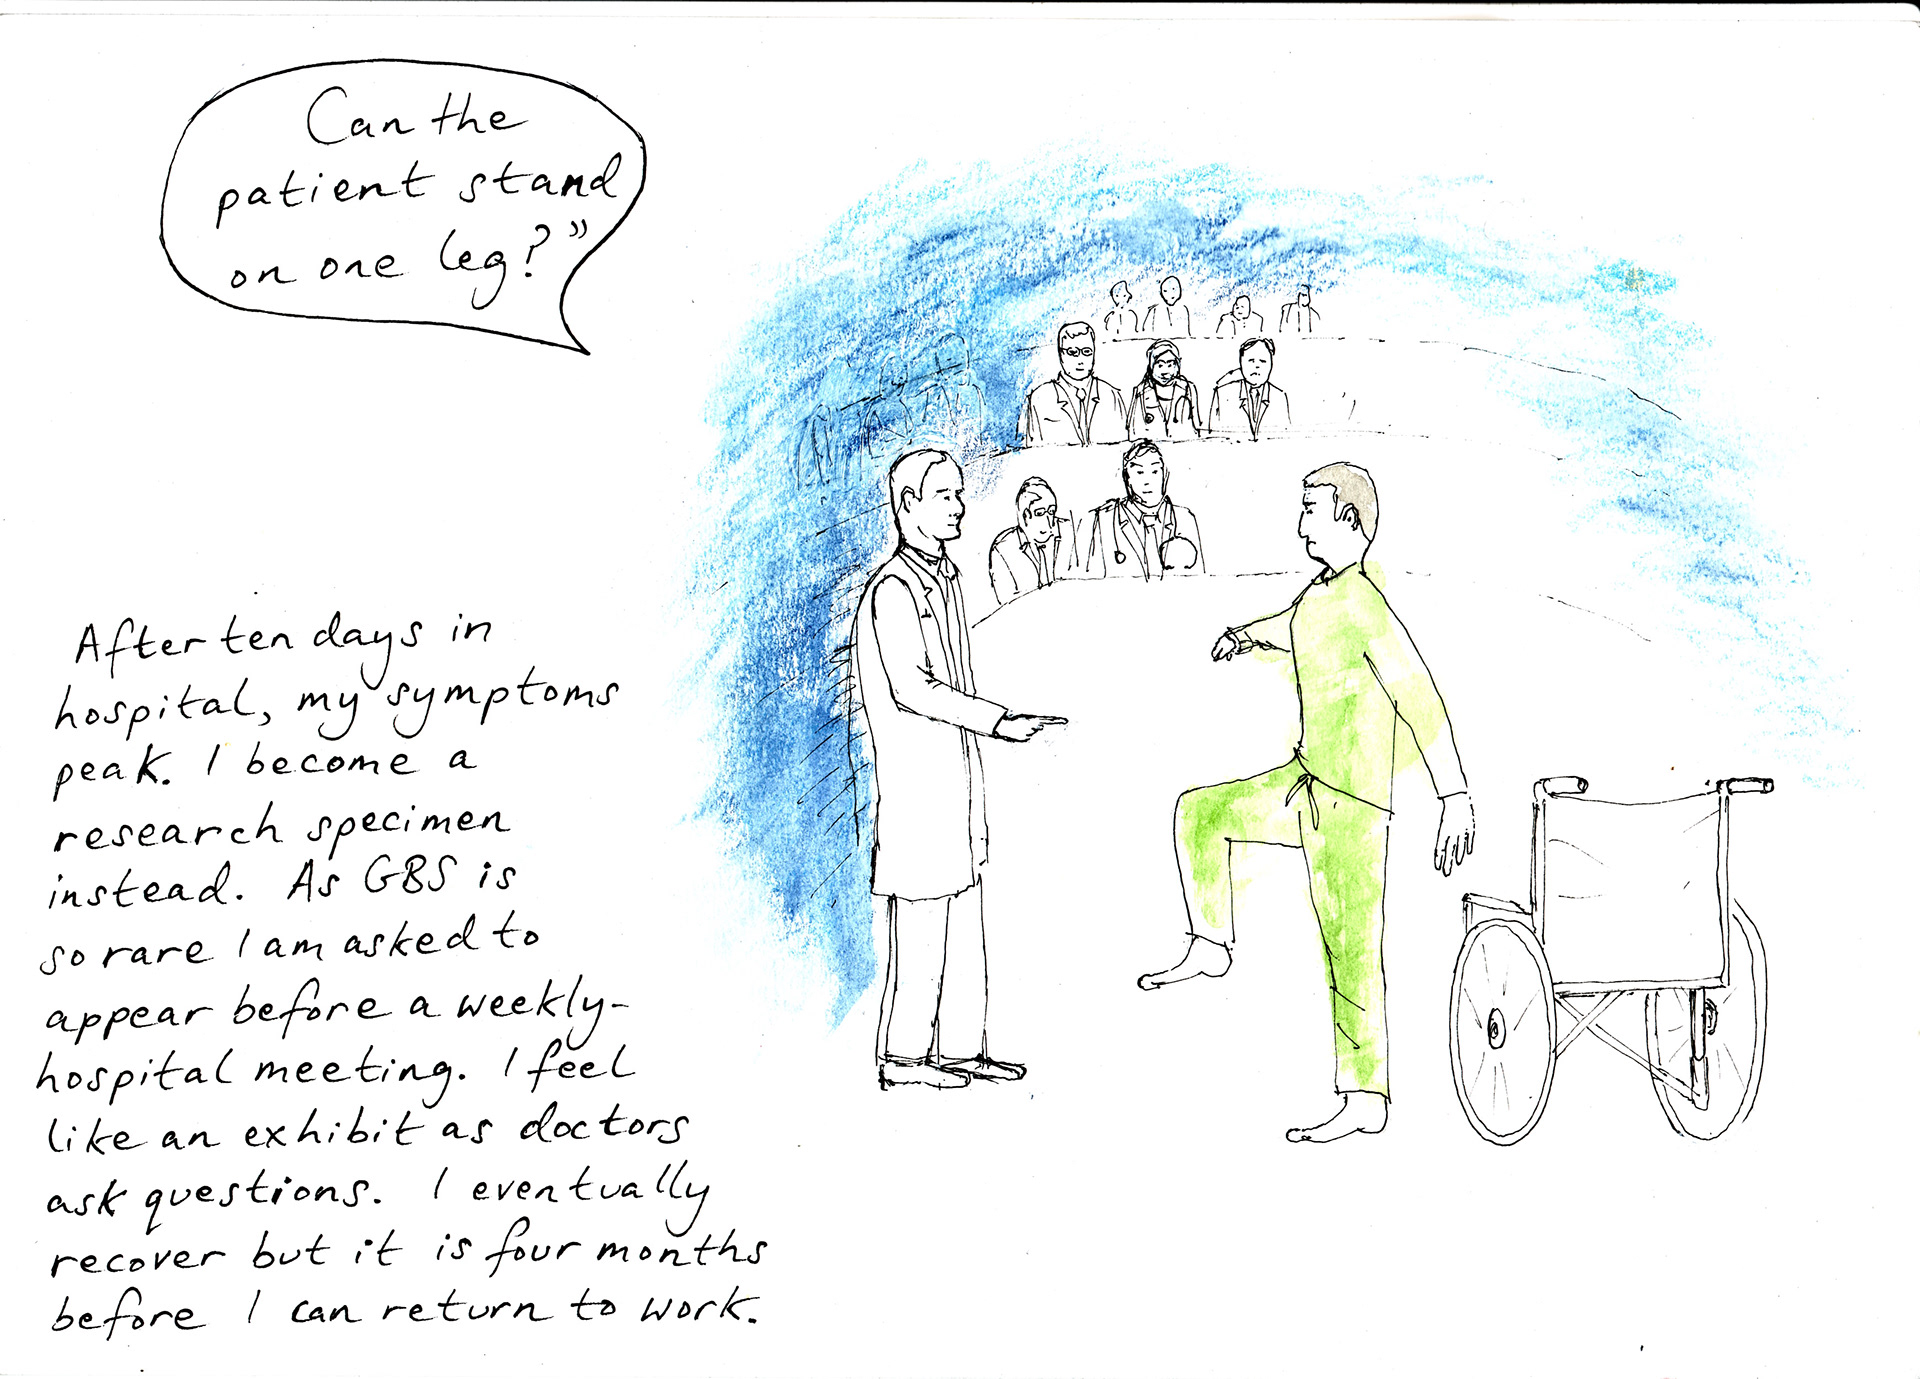 Can the
patient stand
on one leg?"
After ten days in
hospital, my symptoms
peak. I become a
research specimen
instead. As GBS is
so rare I am asked to
appear before a weekly-
hospital meeting. I feel
like an exhibit as doctors
ask questions. I eventually
recover but it is four months
before I can return to work.